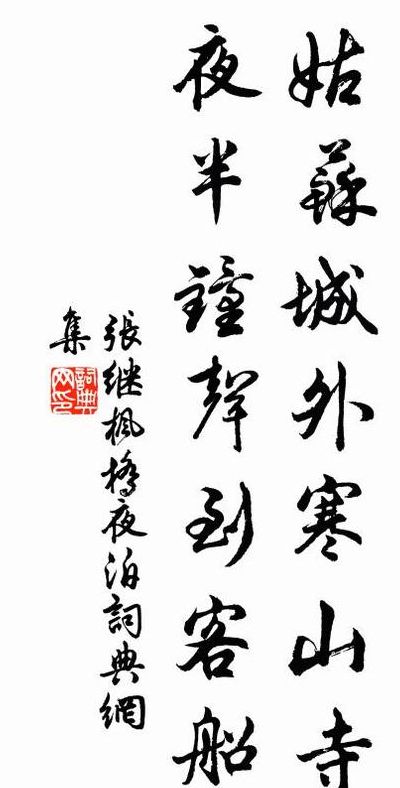 姑蘇城外寒山寺
夜半鐘聲到客船
張继楓橋夜泊詞典網
集
詞典网印